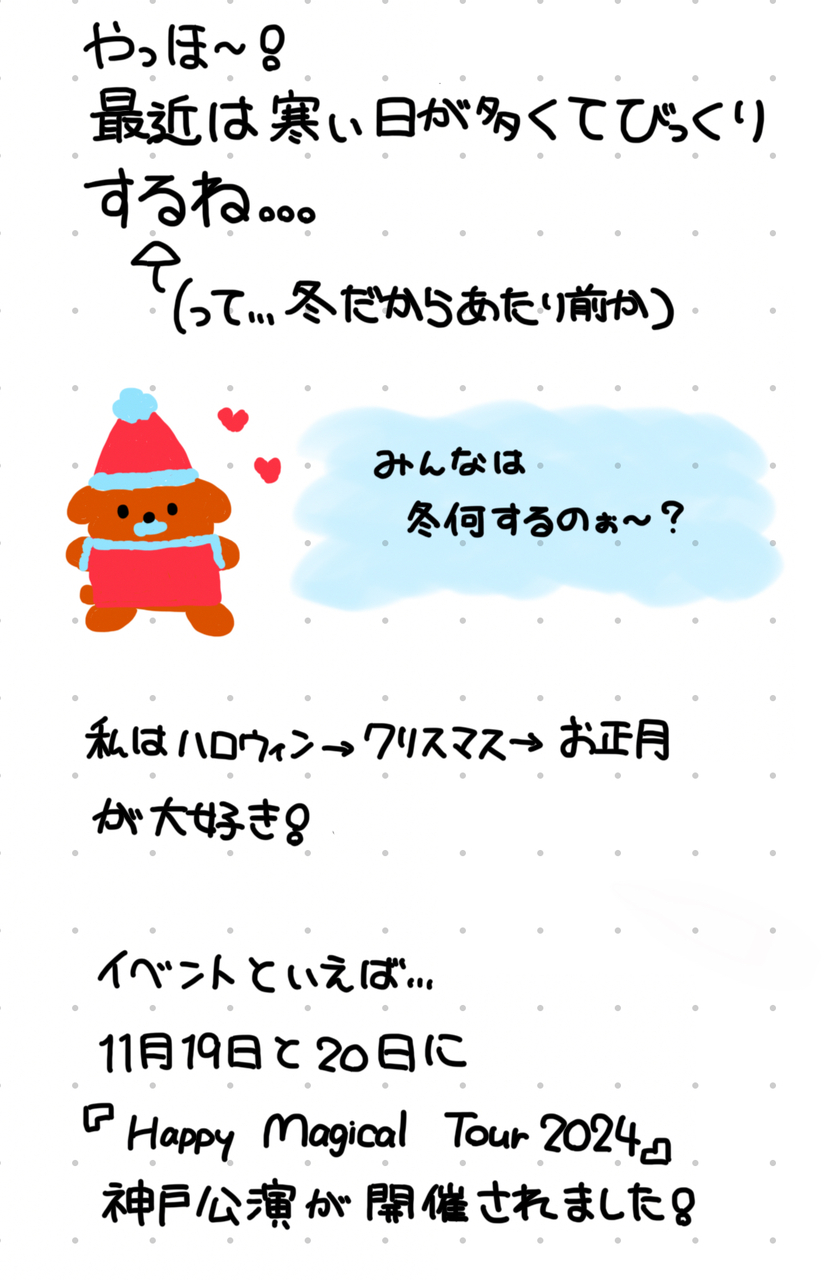 やっほ〜！
最近は寒い日が多くてびっくり
するね...
(って...冬だからあたり前か)
みんなは
冬何するのぉ〜？
私はハロウィン→クリスマス→お正月
が大好き！
イベントといえば...
11月19日と20日に
『Happy Magical Tour 2024』
神戸公演が開催されました！